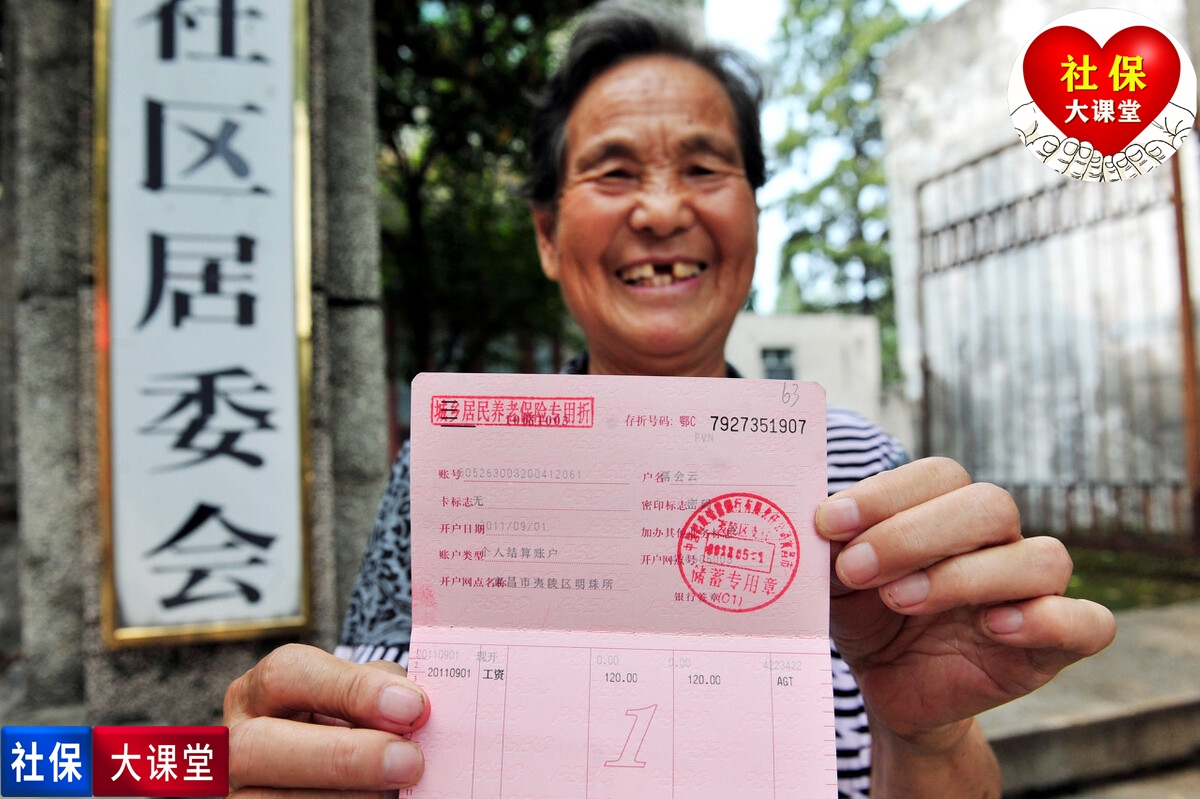 社区居委会
社保
大课堂
63
城乡居民养老保险专用折
存折号码: 鄂C 7927351907
账号 605263003200412061
户名
会云
卡标志 无
密印标志 密码
开户日期 2011/09/01
账户类型 个人结算账户
开户网点名称 宜昌市夷陵区明珠所
银行签章(C1)
夷陵区支行
储蓄专用章
20110901 现开 0.00 0.00 4223422
2 20110901 工资 120.00 120.00 AGT
1
社保 大课堂